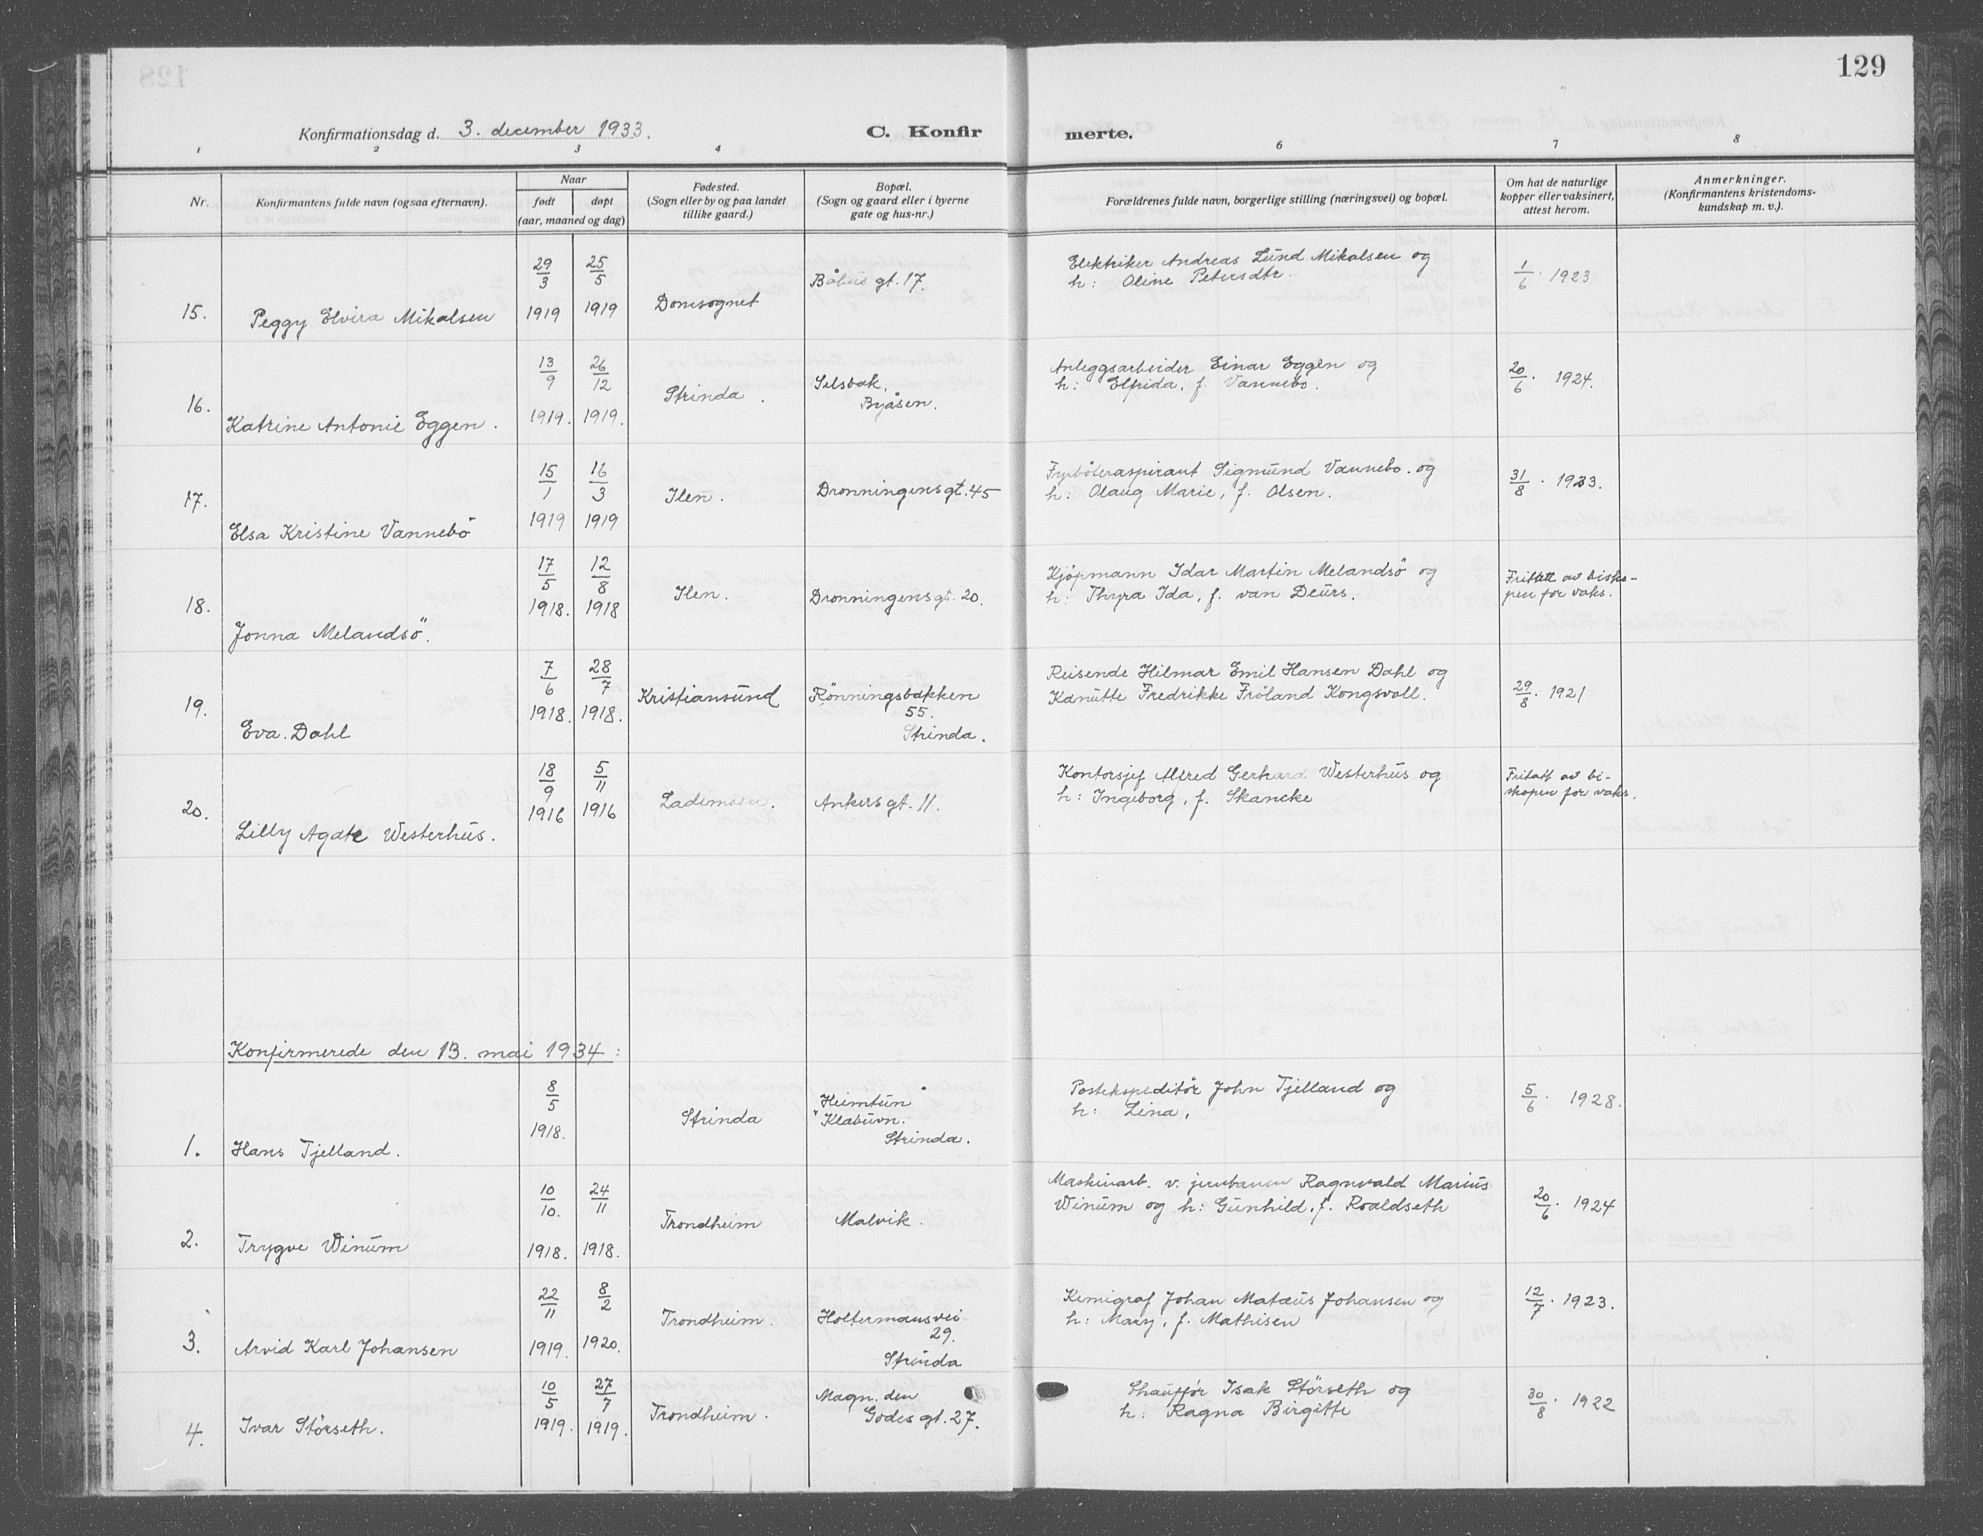 129
Konfirmationsdag d. 3. december 1933.
C. Konfir merte.
1 2 3 4 6 7 8
Nr.
Konfirmantens fulde navn (ogsaa efternavn).
Naar
født døpt
(aar, maaned og dag)
Fødested.
(Sogn eller by og paa landet
tillike gaard.)
Bopæl.
(Sogn og gaard eller i byerne
gate og hus-nr.)
Forældrenes fulde navn, borgerlige stilling (næringsvei) og bopæl.
Om hat de naturlige
kopper eller vaksinert,
attest herom.
Anmerkninger.
(Konfirmantens kristendoms-
kundskap m. v.).
15. Peggy Elvira Mikalsen
29/3 1919
25/5 1919
Domsognet
Båhus gt. 17.
Elektriker Andreas Lund Mikalsen og
h: Oline Petersdtr.
1/6. 1923
16. Katrine Antonie Eggen.
13/9 1919.
26/12 1919.
Strinda.
Selsbak,
Byåsen.
Anleggsarbeider Einar Eggen og
h: Elfrida, f. Vannebo.
20/6. 1924.
17. Elsa Kristine Vannebö
15/1 1919
16/3 1919
Ilen.
Dronningens gt. 45
Fyrböteraspirant Sigmund Vannebo. og
h: Olaug Marie, f. Olsen.
31/8. 1923.
18. Jonna Melandsö.
17/5 1918.
12/8 1918
Ilen.
Dronningens gt. 20.
Kjøpmann Idar Martin Melandsö og
h: Thyra Ida, f. van Deurs.
Fritatt av bisko-
pen for vaks.
19. Eva Dahl
7/6 1918.
28/7 1918.
Kristiansund
Rønningsbakken
55.
Strinda.
Reisende Hilmar Emil Hansen Dahl og
Kanutte Fredrikke Fröland Kongsvoll.
29/8. 1921
20. Lilly Agate Westerhus.
18/9 1916
5/11 1916
Lademoen.
Ankers gt. 11.
Kontorsjef Alfred Gerhard Westerhus og
h: Ingeborg, f. Skancke
Fritatt av bi-
skopen for vaks.
Konfirmerede den 13. mai 1934:
1. Hans Tjelland.
8/5 1918.
Strinda
Heimtun
Klæbuvn.
Strinda.
Postekspeditör John Tjelland og
h: Lina,
5/6. 1928.
2. Trygve Winum
10/10. 1918.
24/11 1918.
Trondheim
Malvik.
Maskinarb. v. jernbanen Ragnvald Marius
Winum og h: Gunhild, f. Roaldseth
20/6. 1924
3. Arvid Karl Johansen
22/11 1919.
8/2 1920.
Trondheim.
Holtermansvei
29.
Strinda
Kemigraf Johan Matæus Johansen og
h: Mary, f. Mathisen
12/7. 1923.
4. Ivar Störseth.
10/5 1919.
27/7 1919.
Trondheim.
Magn. den
Godes gt. 27.
Shauffør Isak Störseth og
h: Ragna Birgitte
30/8. 1922